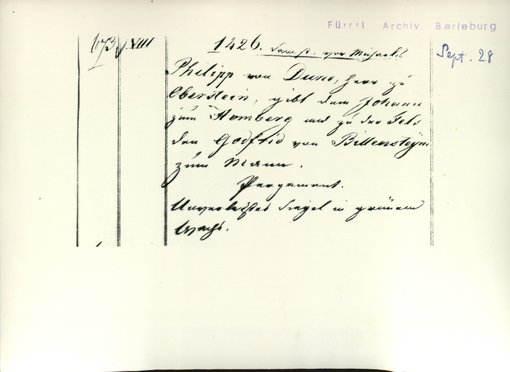 Fürstl. Archiv Berleburg
673 XIII 1426. Samst. vor Michaelis Sept. 28
Philipp von Dune, Herr zu
Oberstein, gibt dem Johann
zum Homberg und zu der Fels
den Godfrid von Billensteyn
zum Mann.
Pergament.
Unverletztes Siegel in grünem
Wachs.